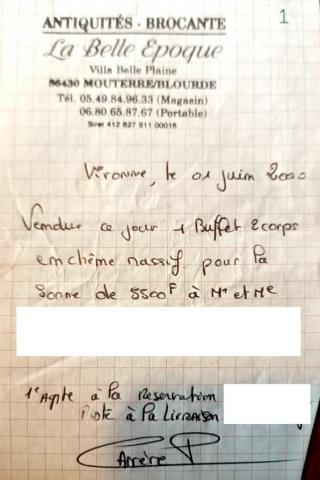 1
ANTIQUITÉS - BROCANTE
La Belle Epoque
Villa Belle Plaine
86430 MOUTERRE/BLOURDE
Tél. 05.49.84.96.33 (Magasin)
06.80.65.87.67 (Portable)
Siret 412 627 911 00016
Vivonne, le 01 juin 2000
Vendue ce jour 1 Buffet 2 corps
en chême massif pour la
Somme de 5500F à Mr et Me
1er Acpte à la Reservation
Reste à la Livraison